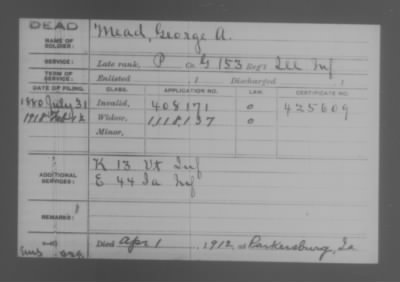 DEAD
NAME OF SOLDIER: Mead, George A.
SERVICE: Late rank, P Co. G 153 Reg't Ill Inf
TERM OF SERVICE: Enlisted , 1 Discharged , 1
DATE OF FILING. CLASS. APPLICATION NO. LAW. CERTIFICATE NO.
1880 July 31 Invalid, 408,171 o 425609
1912 Widow, 1,118,137 o
Minor,
ADDITIONAL SERVICES: K 13 Vt Inf
E 44 Ia Inf
REMARKS:
Died Apr 1, 1912, at Parkersburg, Ia